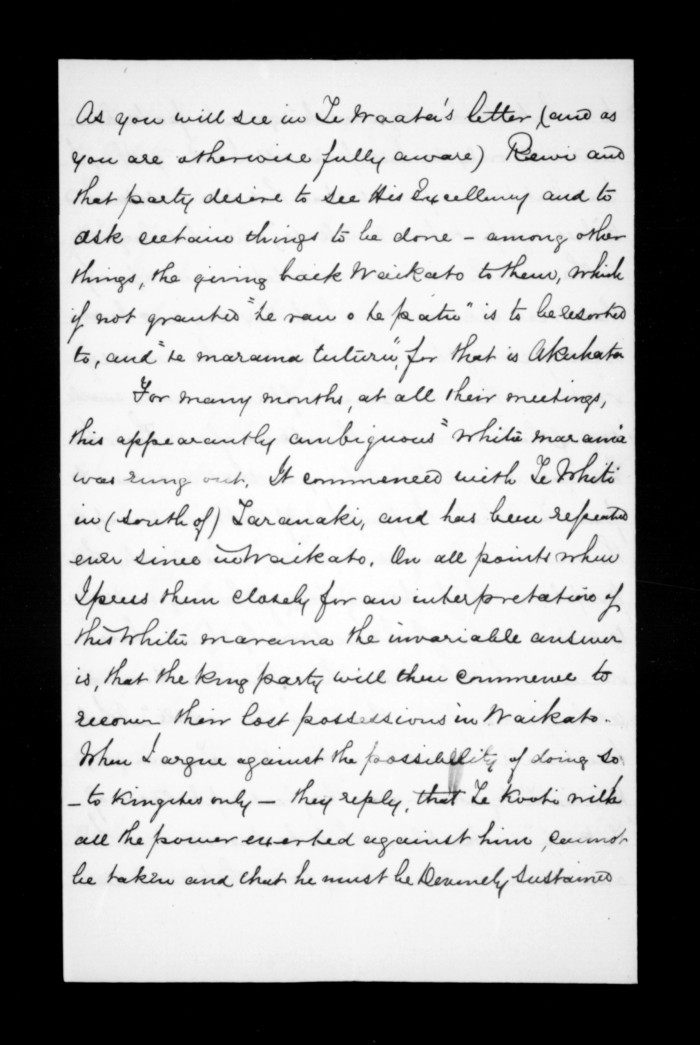 As you will see in Te Waata's letter (and as
you are otherwise fully aware) Rewi and
that party desire to see His Excellency and to
ask certain things to be done – among other
things, the giving back Waikato to them, which
if not granted "te rau o te patu" is to be resorted
to, and "te marama tuturu", for that is Akuhata
For many months, at all their meetings,
this appearantly ambiguous "Whitu marama
was rung out. It commenced with Te Whiti
in (south of) Taranaki, and has been repeated
ever since in Waikato. On all points when
I press them closely for an interpretation of
this Whitu marama the invariable answer
is, that the King party will then commence to
recover their lost possessions in Waikato.
When I argue against the possibility of doing so
– to Kingites only – they reply, that Te Kooti with
all the power exerted against him, cannot
be taken and that he must be Devinely sustained